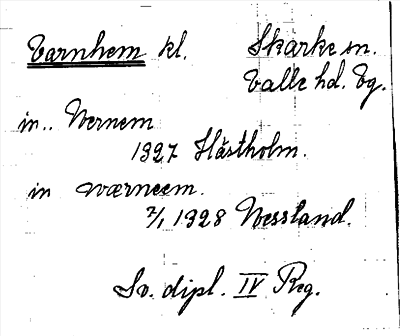 Varnhem kl. Skarke sn.
Valle hd. Vg.
in.. Wernem
1327 Hästholm.
in Wærneem.
7/1 1328 Wessland.
Sv. dipl. IV Reg.